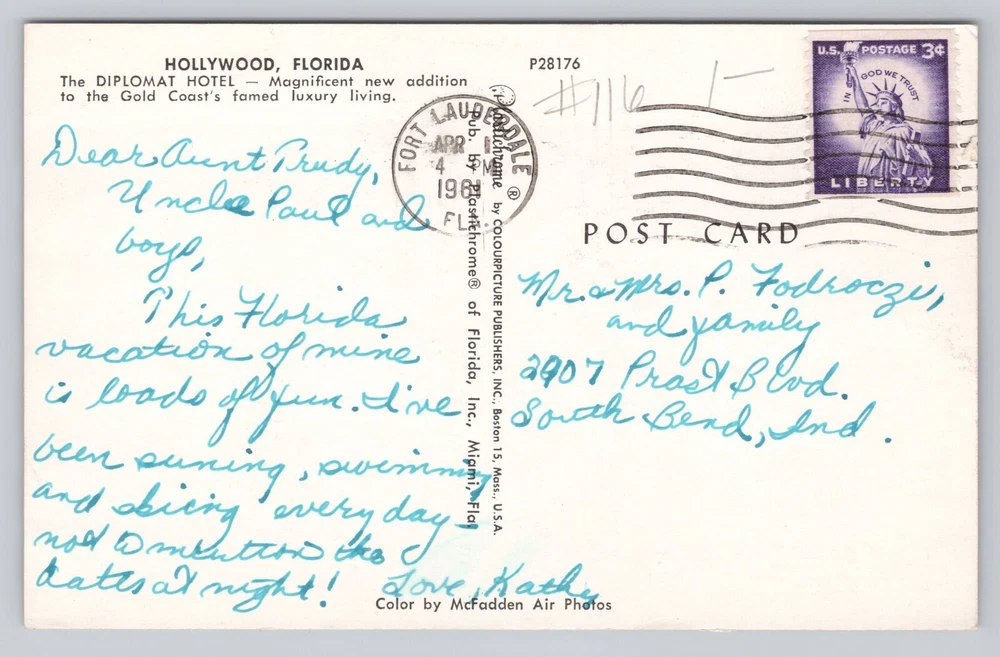 HOLLYWOOD, FLORIDA
The DIPLOMAT HOTEL — Magnificent new addition
to the Gold Coast's famed luxury living.
P28176
#116
U.S. POSTAGE 3¢
IN GOD WE TRUST
LIBERTY
FORT LAUDERDALE
APR
4 PM
1961
FLA.
Plastichrome ® by COLOURPICTURE PUBLISHERS, INC., Boston 15, Mass., U.S.A.
Pub. by Plastichrome® of Florida, Inc., Miami, Fla.
POST CARD
Dear Aunt Trudy,
Uncle Paul and
boys,
This Florida
vacation of mine
is loads of fun. I've
been suning, swimming
and skiing everyday
not to mention the
dates at night!
Love, Kathy
Mr. & Mrs. P. Fodroczi,
and family
2907 Prast Blvd.
South Bend, Ind.
Color by McFadden Air Photos